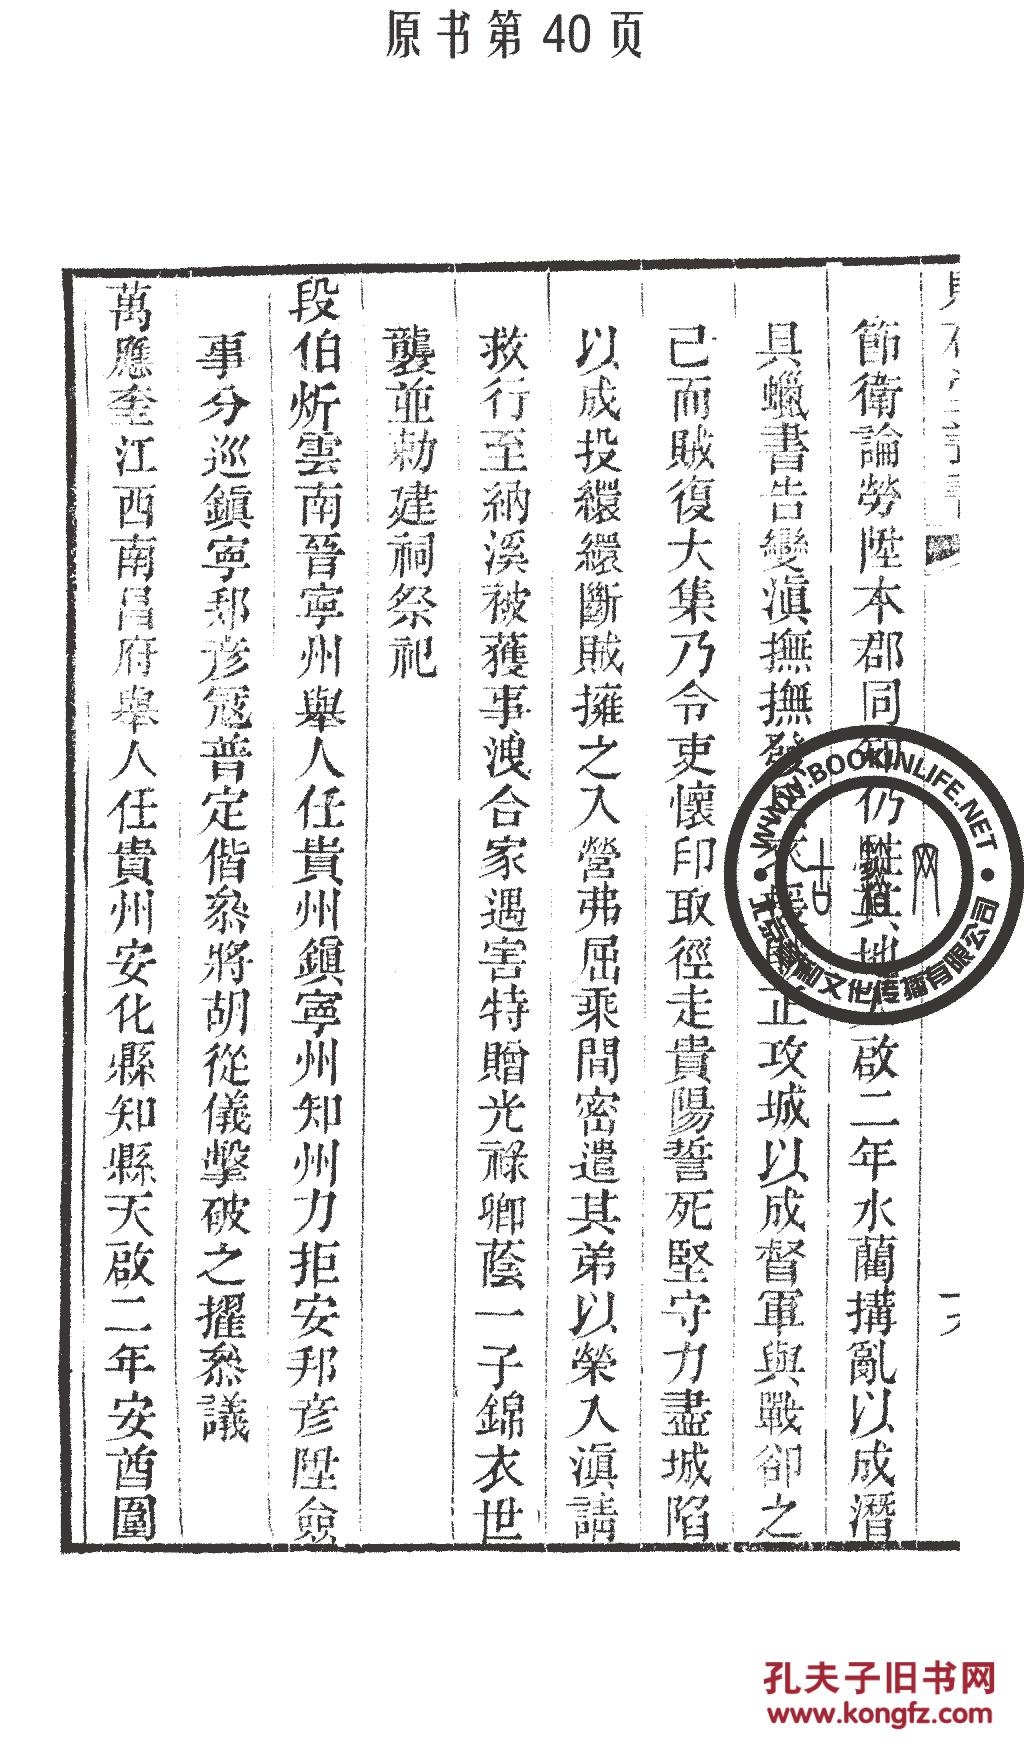 原书第40页
節衛論勞陞本郡同知仍駐其地啟二年水藺搆亂以成潛
具蠟書告變滇撫撫發援正攻城以成督軍與戰卻之
已而賊復大集乃令吏懷印取徑走貴陽誓死堅守力盡城陷
以成投繯繯斷賊擁之入營弗屈乘間密遣其弟以榮入滇請
救行至納溪被獲事洩合家遇害特贈光祿卿蔭一子錦衣世
襲並勅建祠祭祀
段伯炘雲南晉寧州舉人任貴州鎮寧州知州力拒安邦彥陞僉
事分巡鎮寧邦彥寇普定偕叅將胡從儀擊破之擢叅議
萬應奎江西南昌府舉人任貴州安化縣知縣天啟二年安酋圍
WWW.BOOKINLIFE.NET
文化传播有限公司
古籍网
孔夫子旧书网
www.kongfz.com